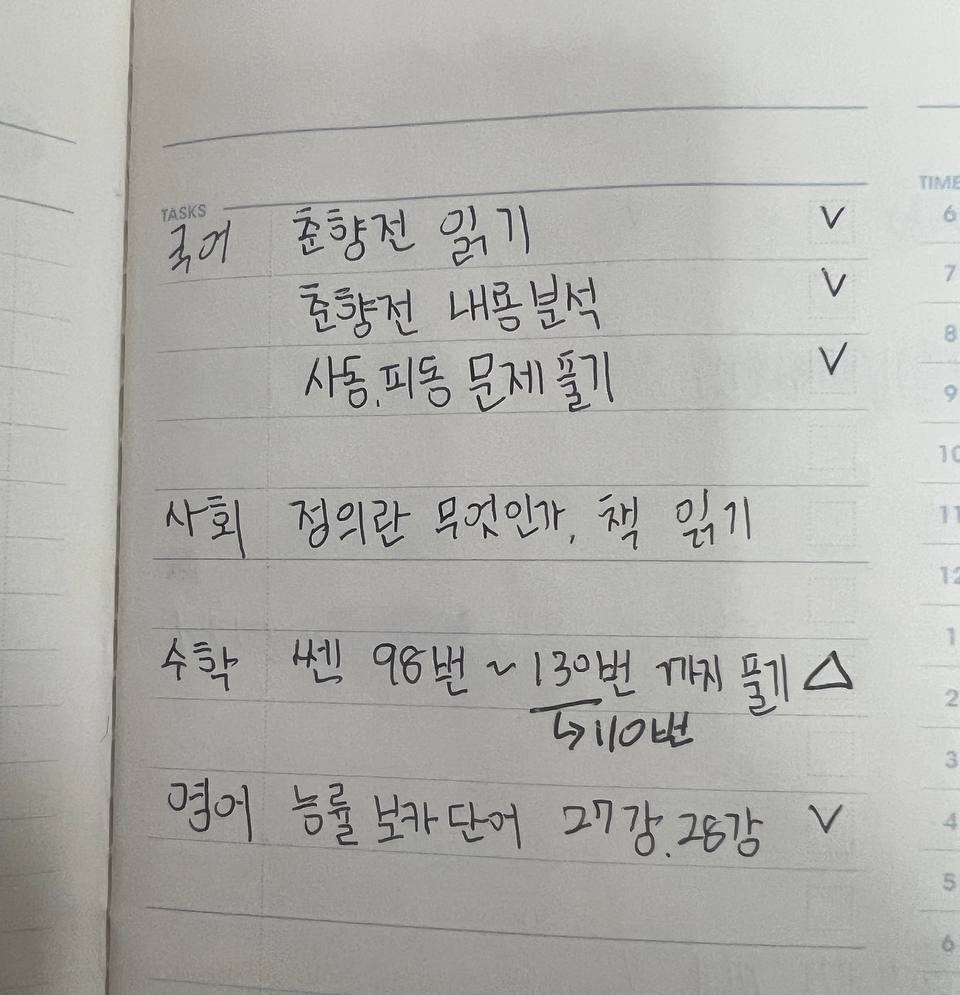 TASKS
TIME
국어 춘향전 읽기 V
춘향전 내용분석 V
사동.피동 문제풀기 V
사회 정의란 무엇인가, 책 읽기
수학 쎈 98번 ~ 130번 까지 풀기 △
↳110번
영어 능률 보카 단어 27강.28강 V
6
7
8
9
10
11
12
1
2
3
4
5
6